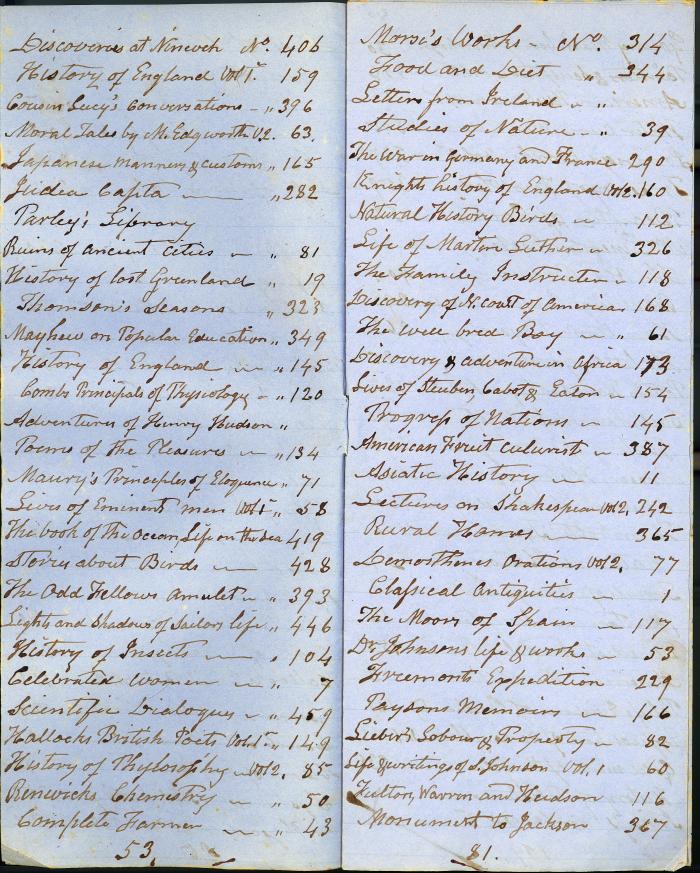 Discoveries at Nineveh No. 406
History of England Vol 1st. 159
Cousin Lucy's Conversations - " 396
Moral Tales by M. Edgworth V2. 63.
Japanese manners & customs " 165
Judea Capta " 282
Parley's Library
Ruins of ancient Cities - " 81
History of lost Greenland " 19
Thomson's Seasons " 323
Mayhew on Popular Education " 349
History of England - " 145
Combs Principals of Physiology - " 120
Adventures of Henry Hudson "
Poems of the Pleasures - " 134
Maury's Principles of Eloquence " 71
Lives of Eminent men Vol 1st " 58
The book of the Ocean, Life on the Sea 419
Stories about Birds - 428
The Odd Fellows Amulet - " 393
Lights and Shadows of Sailors life " 446
History of Insects - " 104
Celebrated Women - " 7
Scientific Dialogues - " 459
Hallocks British Poets Vol. 1st " 149
History of Phylosophy - Vol 2. 85
Renwicks Chemistry - " 50
Complete Farmer - " 43
53.
Morse's Works - No. 314
Food and Diet " 344
Letters from Ireland - "
Studies of Nature - " 39
The War in Germany and France 290
Knights history of England Vol 2. 160
Natural History Birds - 112
Life of Martin Luther - 326
The Family Instructer - 118
Discovery of N. coast of Americas 168
The well bred Boy - " 61
Discovery & adventure in Africa 173
Lives of Steuben, Cabot & Eaton - 154
Progress of Nations - 145
American Fruit culurist - 387
Asiatic History - 11
Lectures on Shakespear Vol 2, 242
Rural Homes 365
Demosthenes Orations Vol 2. 77
Classical Antiquities - 1
The Moors of Spain - 117
Dr. Johnsons life & works - 53
Freemonts Expedition 229
Paysons Memoirs - 166
Lieber's Labour & Property - 82
Life & writings of S. Johnson Vol. 1 60
Fulton, Warren and Hudson 116
Monument to Jackson 367
81.